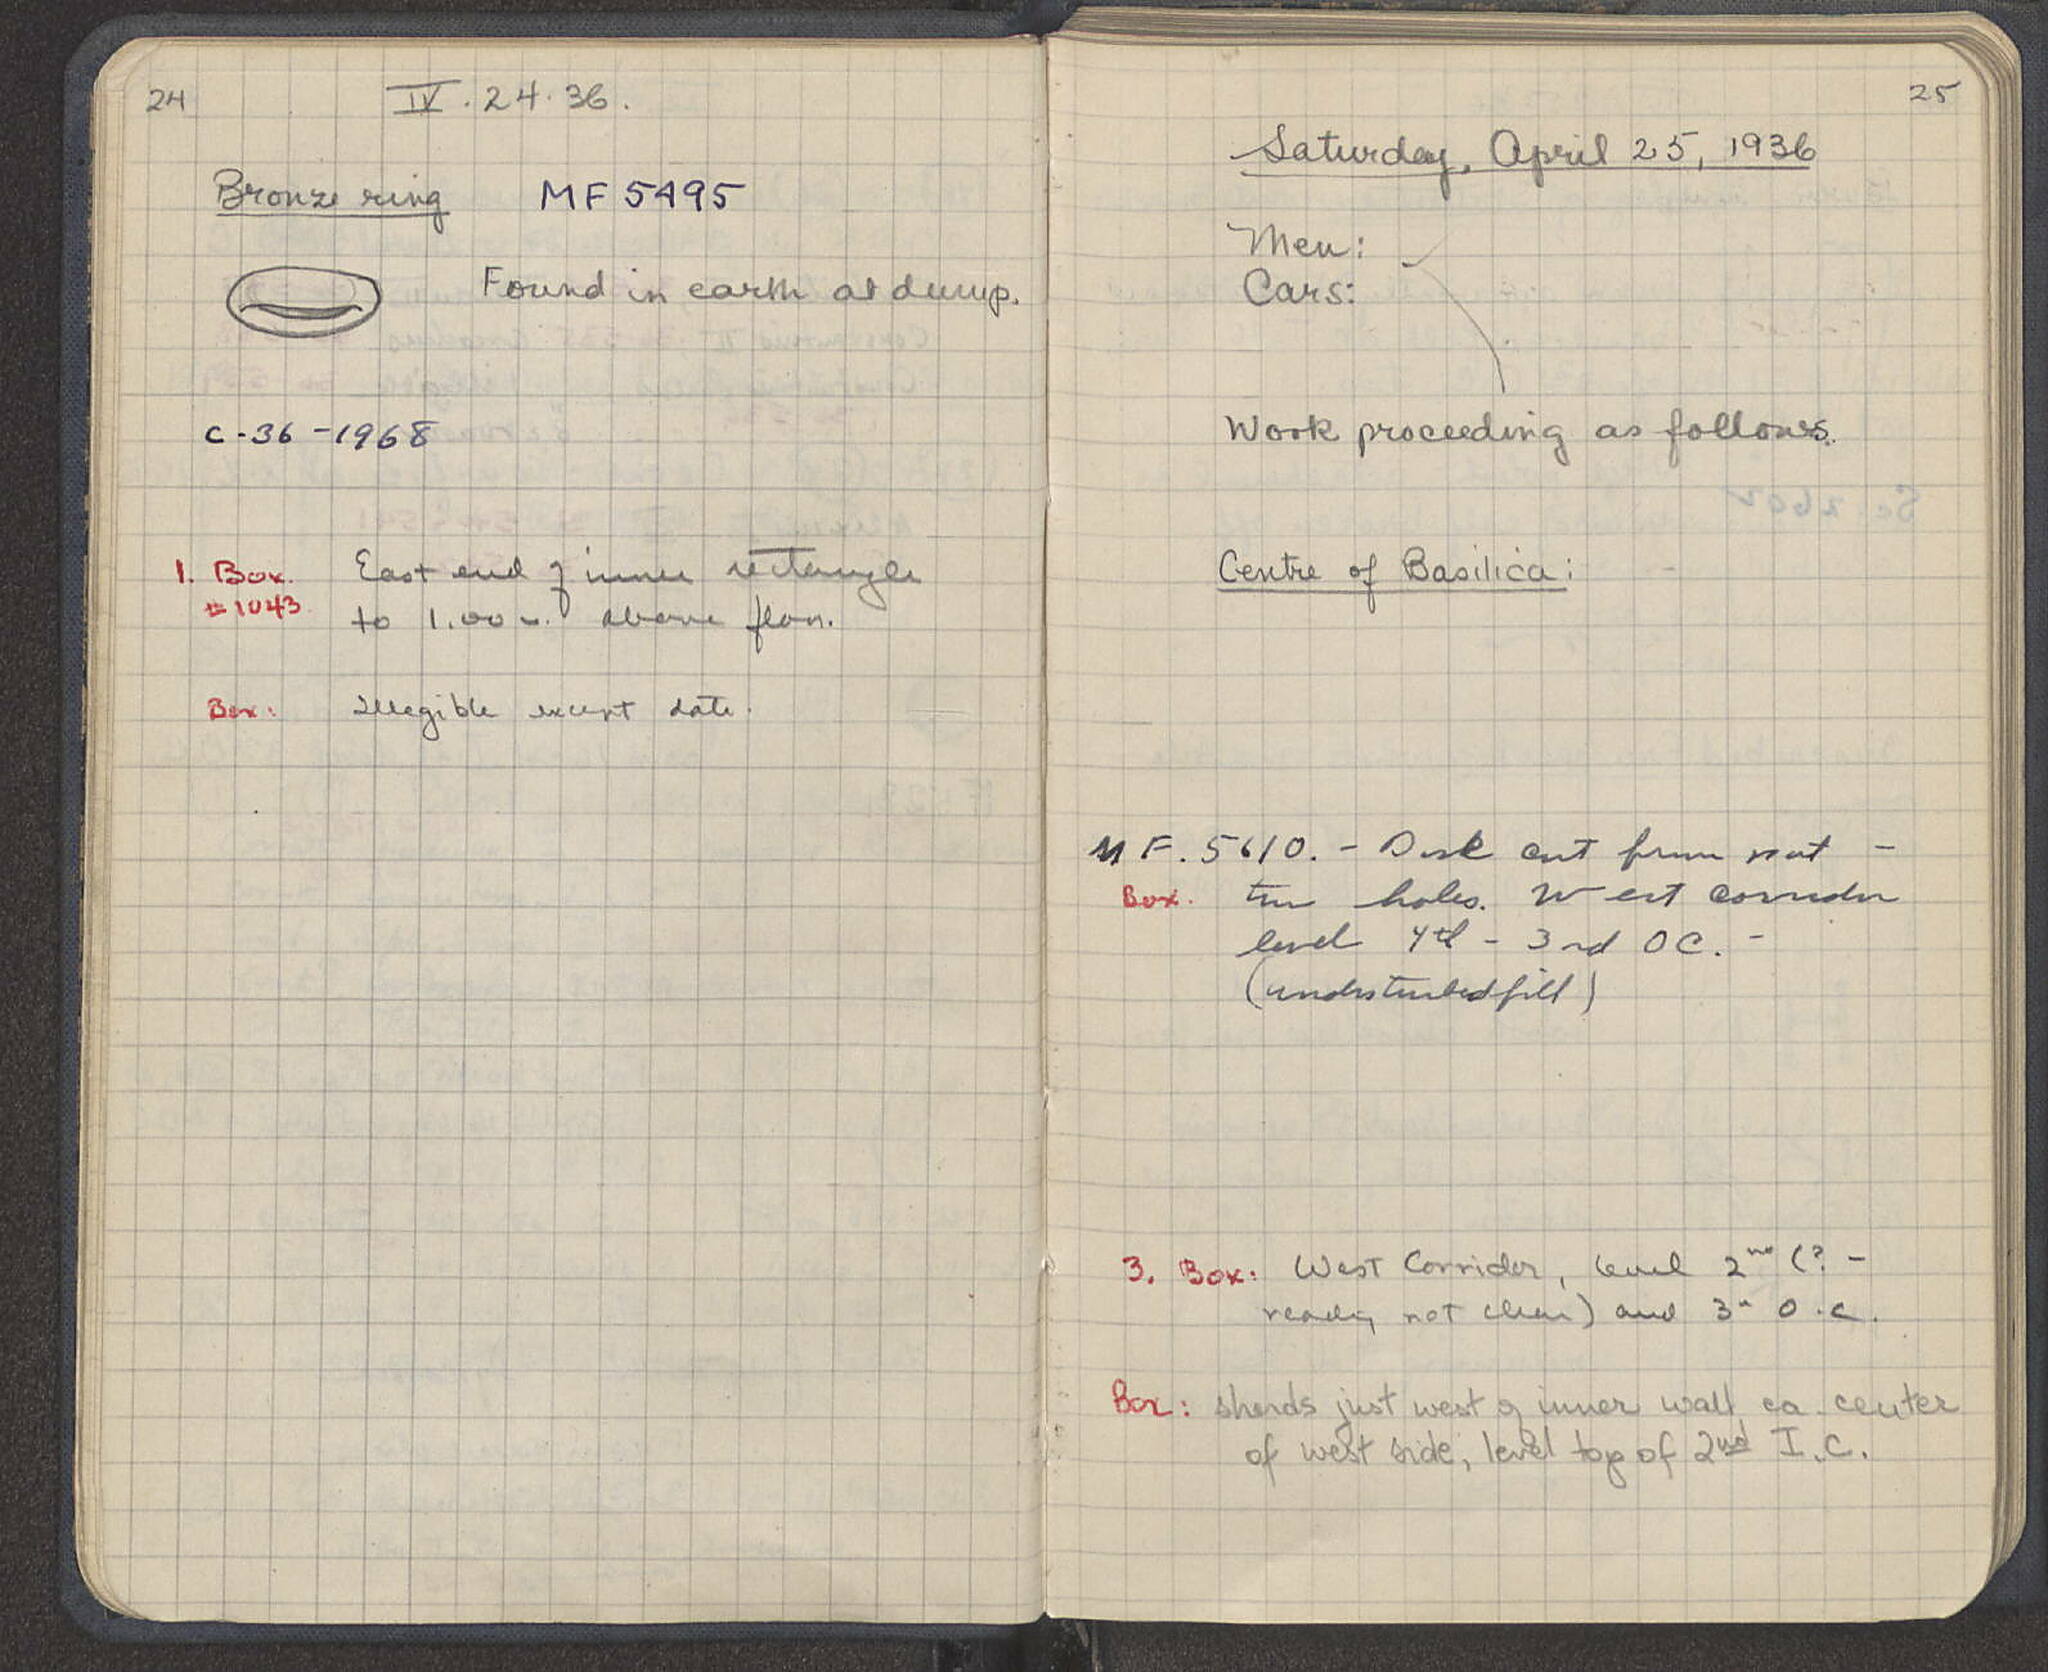 24
IV. 24. 36.
Bronze ring MF 5495
Found in earth at dump.
C-36-1968
1. Box. East end of inner rectangle
#1043 to 1.00 m. above floor.
Box: illegible except date.
25
Saturday, April 25, 1936
Men:
Cars:
Work proceeding as follows.
Centre of Basilica:
MF. 5610. - Disk cut from pot -
Box. two holes. West corridor
level 4th - 3rd O C. -
(undisturbed fill)
3. Box: West Corridor, level 2nd (? -
reading not clear) and 3rd O.C.
Box: sherds just west of inner wall ca. center
of west side, level top of 2nd I.C.